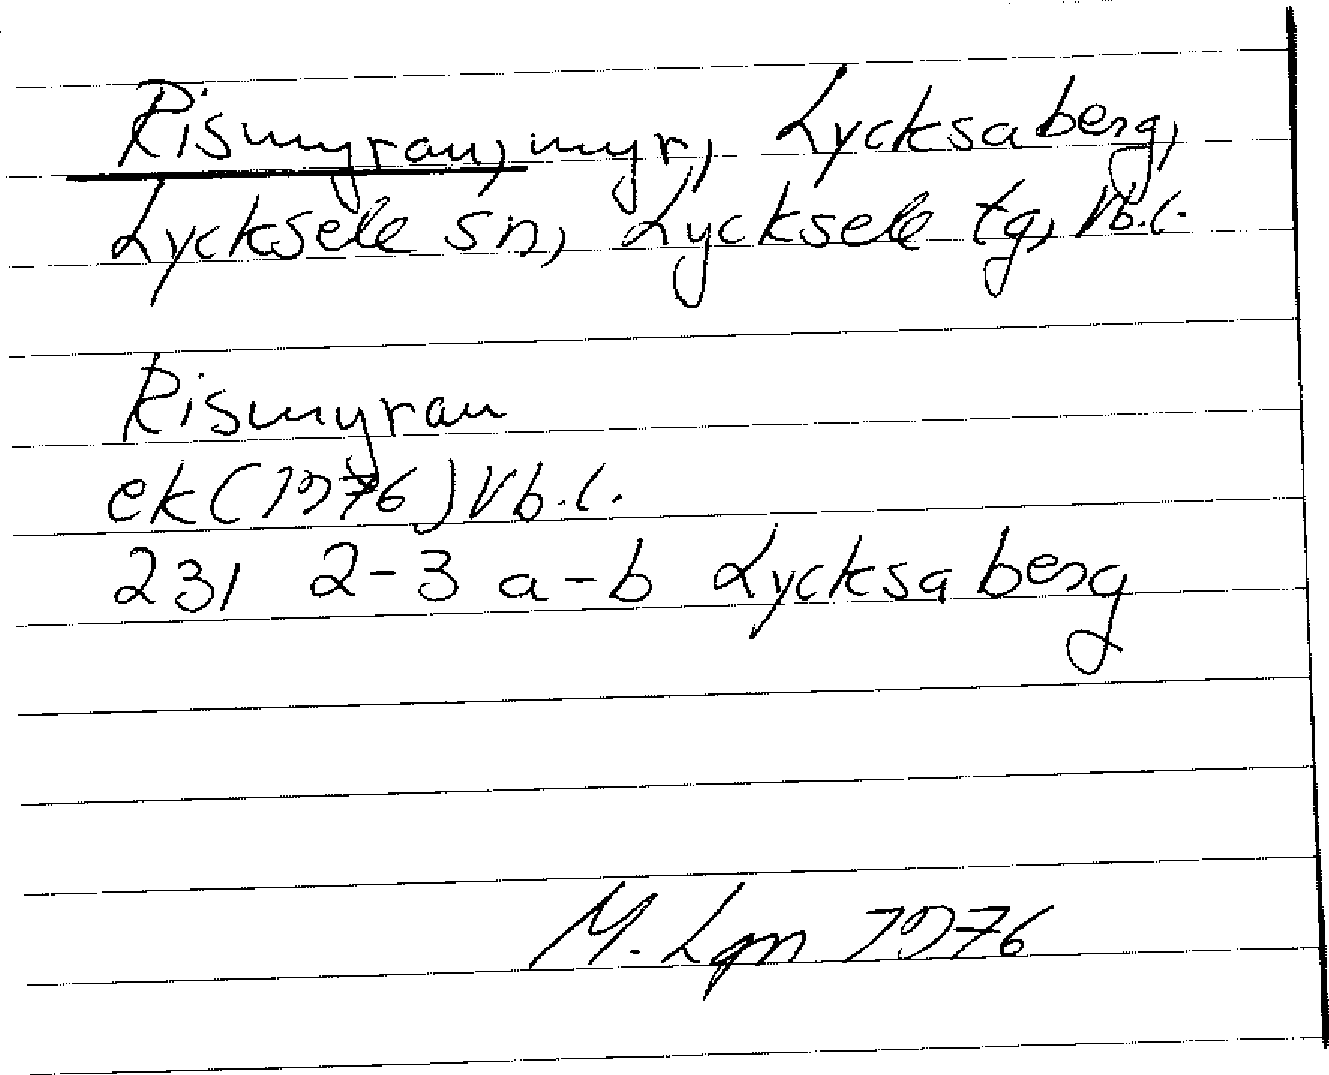 Rismyran, myr, Lycksaberg,
Lycksele sn, Lycksele tg, Vb.l.
Rismyran
ek (1976) Vb.l.
231 2-3 a-b Lycksaberg
M. Lgn 1976